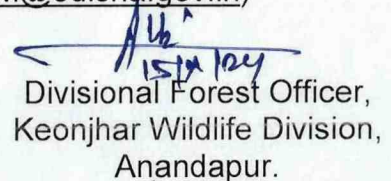 @odisha.gov.in)
15/11/24
Divisional Forest Officer,
Keonjhar Wildlife Division,
Anandapur.